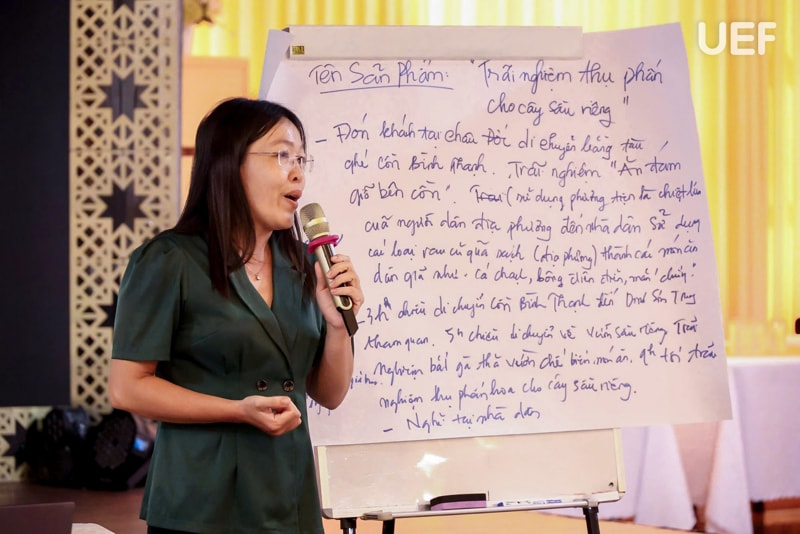 UEF
Tên Sản Phẩm: "Trải nghiệm thụ phấn
cho cây sầu riêng"
- Đón khách tại chân Đốc di chuyển bằng tàu
ghé Cồn Bình Thạnh. Trải nghiệm "Ăn đám
giỗ bên cồn". (sử dụng phương tiện là
của người dân địa phương đến nhà dân Sử dụng
các loại rau củ quả sạch (địa phương) thành các món ăn
dân giã như: cá chạch, bông điên điển,
- 3h chiều di chuyển Cồn Bình Thạnh đến
tham quan. 5h chiều di chuyển về vườn sầu riêng Trải
nghiệm bắt gà thả vườn chế biến món ăn. 9h tối trải
nghiệm thụ phấn hoa cho cây sầu riêng.
- Nghỉ tại nhà dân